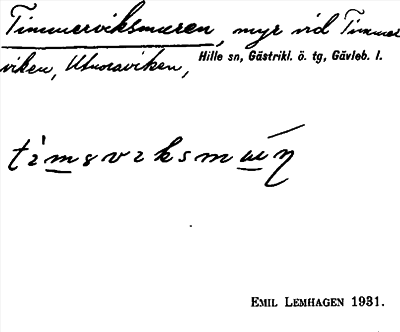 Timmerviksmuren, myr vid Timmer
viken, Utnoraviken, Hille sn, Gästrikl. ö. tg, Gävleb. l.
EMIL LEMHAGEN 1931.